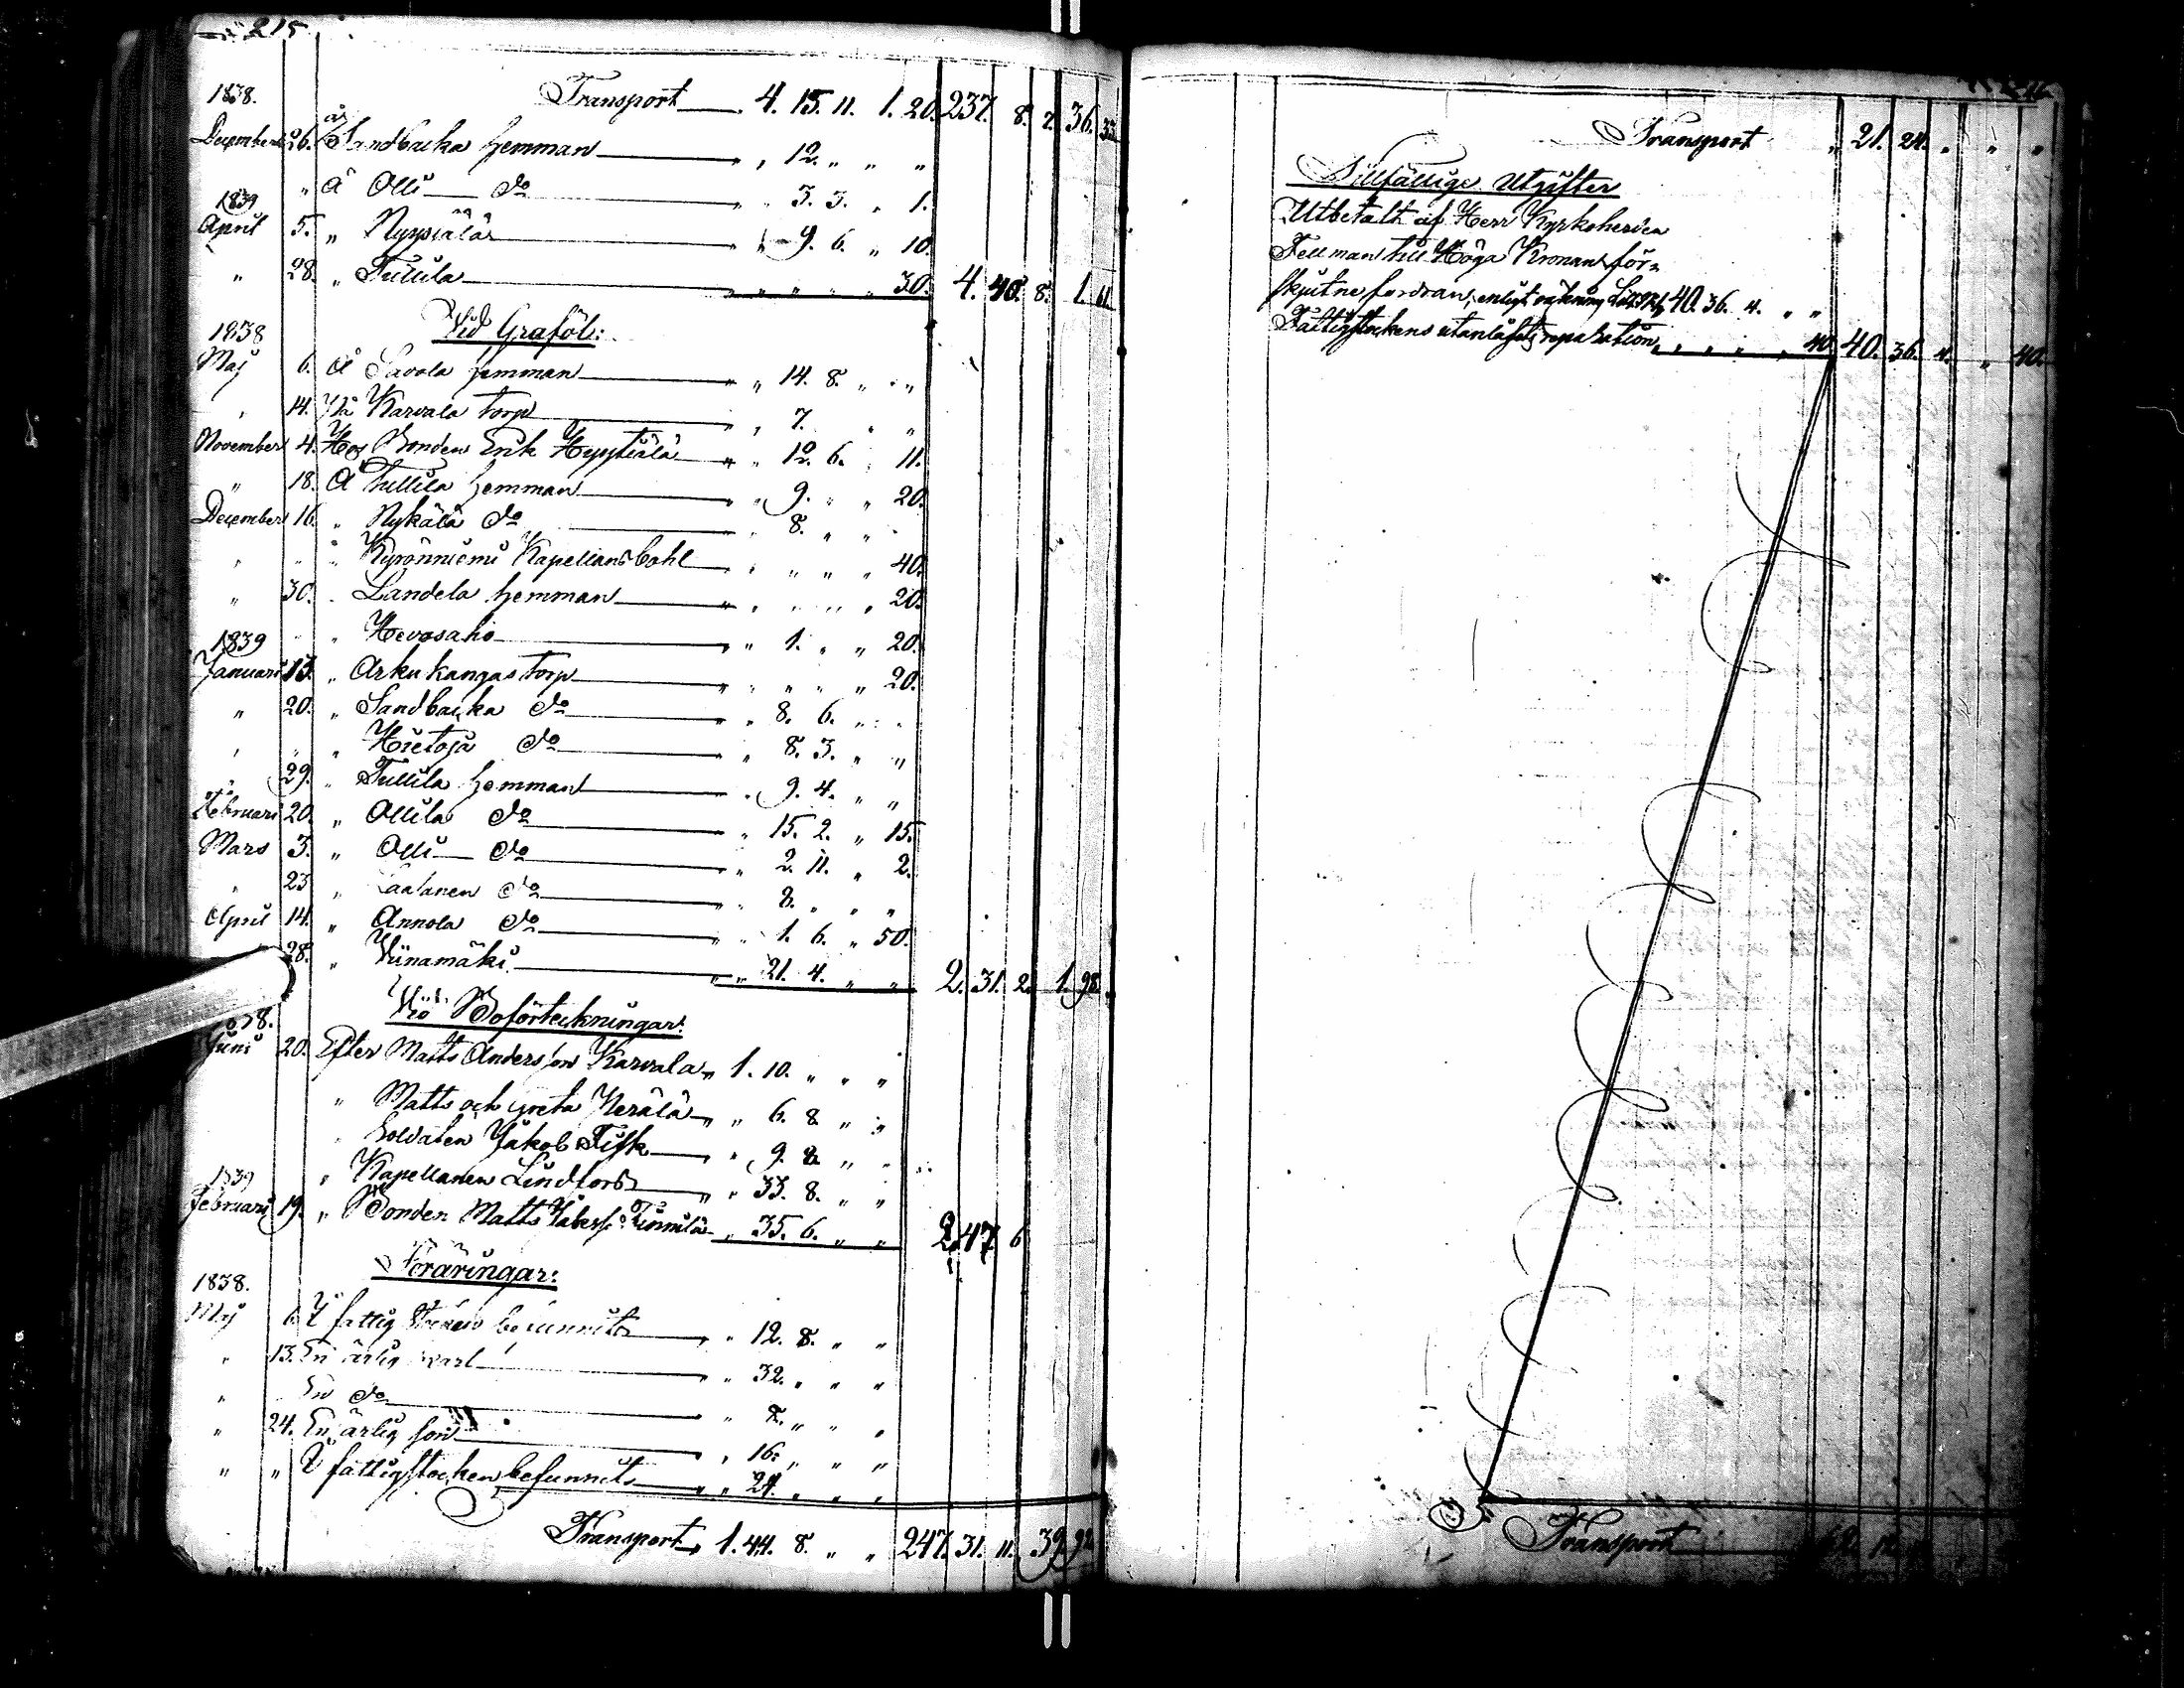 215
1838. Transport 4. 15. 11. 1. 20. 237. 8. 7. 36. 33
December 26. å Sandbacka hemman " 12. " " "
" å Olli do " 3. 3. " 1.
1839
April 5. " Nyyssälä " 9. 6. " 10.
" 28. " Tullila " " " " 30. 4. 40. 8. 1. 61.
Vid Graföl:
1838
Maj 6. å Savola hemman " 14. 8. " "
" 14. På Karvala torp " 7. " "
November 4. Hos Bonden Erik Hyytiälä " 12. 6. " 11.
" 18. Å Tullila hemman " 9. " " 20.
December 16. " Nykälä do " 8. " "
" " " Kyrönniemi Kapellansbohl " " " " 40.
" 30. " Landela hemman " " " " 20.
" " Hevosaho " 1. " " 20.
1839
Januari 13. " Arkukangas torp " " " " 20.
" 20. " Sandbacka do " 8. 6. " "
" " " Hietoja do " 8. 3. " "
" 29. " Tullila hemman " 9. 4. " "
Februari 20. " Ollila do " 15. 2. " 15.
Mars 3. " Olli do " 2. 11. " 2.
" 23 " do " 8. " " "
April 14. " Annola do " 1. 6. " 50.
28. " Viinamäki " 21. 4. " " 2. 31. 2. 1. 98.
Vid Boförteckningar:
Juni 20. Efter Matts Andersson Karvala " 1. 10. " " "
" Matts och Greta Kerälä " 6. 8 " "
" Soldaten Jakob Fisk " 9. 8. " "
" Kapellanen Lindfors " 33. 8. " "
1839
Februari 19. " Bonden Matts " 35. 6. " " 2. 47. 6
Föräringar:
1838.
Maj 6. I fattig befunnits " 12. 8. " "
" 13. En ärlig karl " 32. " " "
" En do " 8. " " "
" 24. En ärlig son " 16. " " "
" " I fattigstocken befunnits " 24. " " "
Transport 1. 44. 8. " " 247. 31. 11. 39. 92
Transport " 21. 24. " " "
Tillfällige Utgifter
Utbetalt af Herr Kyrkoherden
Fellman till Höga Kronans för=
skjutne fordran, enligt räkning 40. 36. 4. " "
Fattigstockens utanlåsets reparation " " " " 40. 40. 36. 4. " 40.
Transport